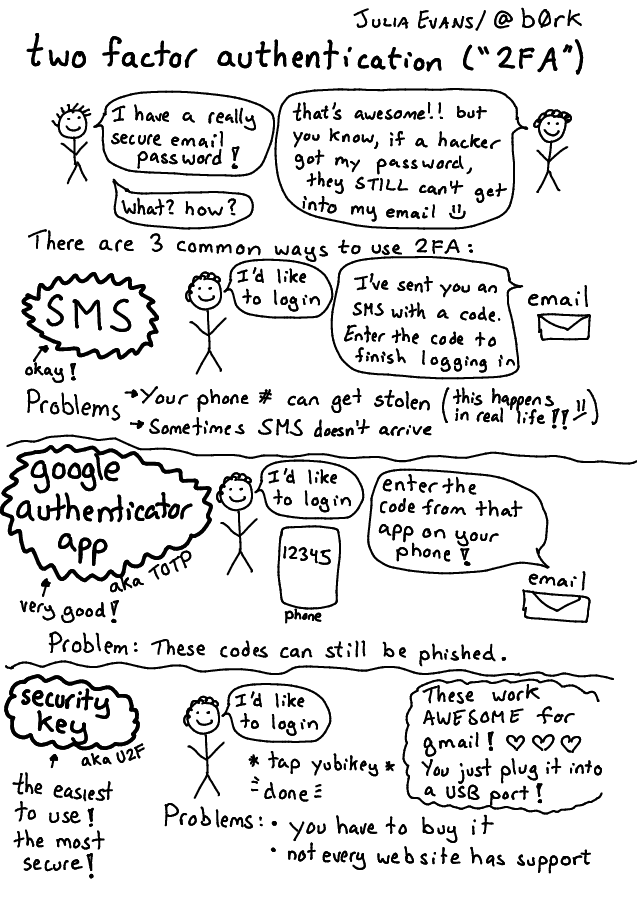 JULIA EVANS/@b0rk
two factor authentication ("2FA")
I have a really
secure email
password!
that's awesome!! but
you know, if a hacker
got my password,
they STILL can't get
into my email
What? how?
There are 3 common ways to use 2FA:
SMS
okay!
I'd like
to login
I've sent you an
SMS with a code.
Enter the code to
finish logging in
email
Problems
→ Your phone # can get stolen (this happens
in real life!!)
→ Sometimes SMS doesn't arrive
google
authenticator
app
aka TOTP
very good!
I'd like
to login
12345
phone
enter the
code from that
app on your
phone!
email
Problem: These codes can still be phished.
security
key
aka U2F
the easiest
to use!
the most
secure!
I'd like
to login
* tap yubikey *
done
These work
AWESOME for
gmail! ♡♡♡
You just plug it into
a USB port!
Problems: • you have to buy it
• not every website has support